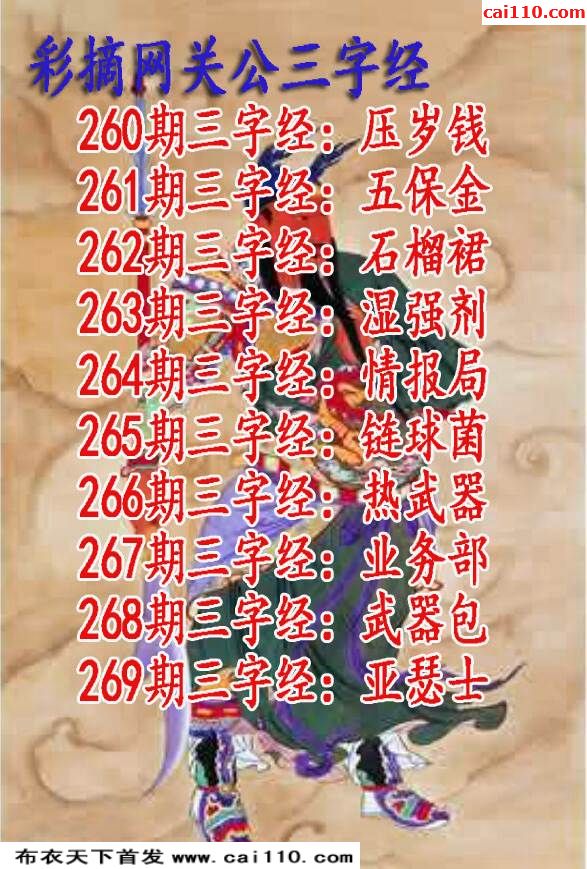 cai110.com
彩摘网关公三字经
260期三字经：压岁钱
261期三字经：五保金
262期三字经：石榴裙
263期三字经：湿强剂
264期三字经：情报局
265期三字经：链球菌
266期三字经：热武器
267期三字经：业务部
268期三字经：武器包
269期三字经：亚瑟士
布衣天下首发 www.cai110.com